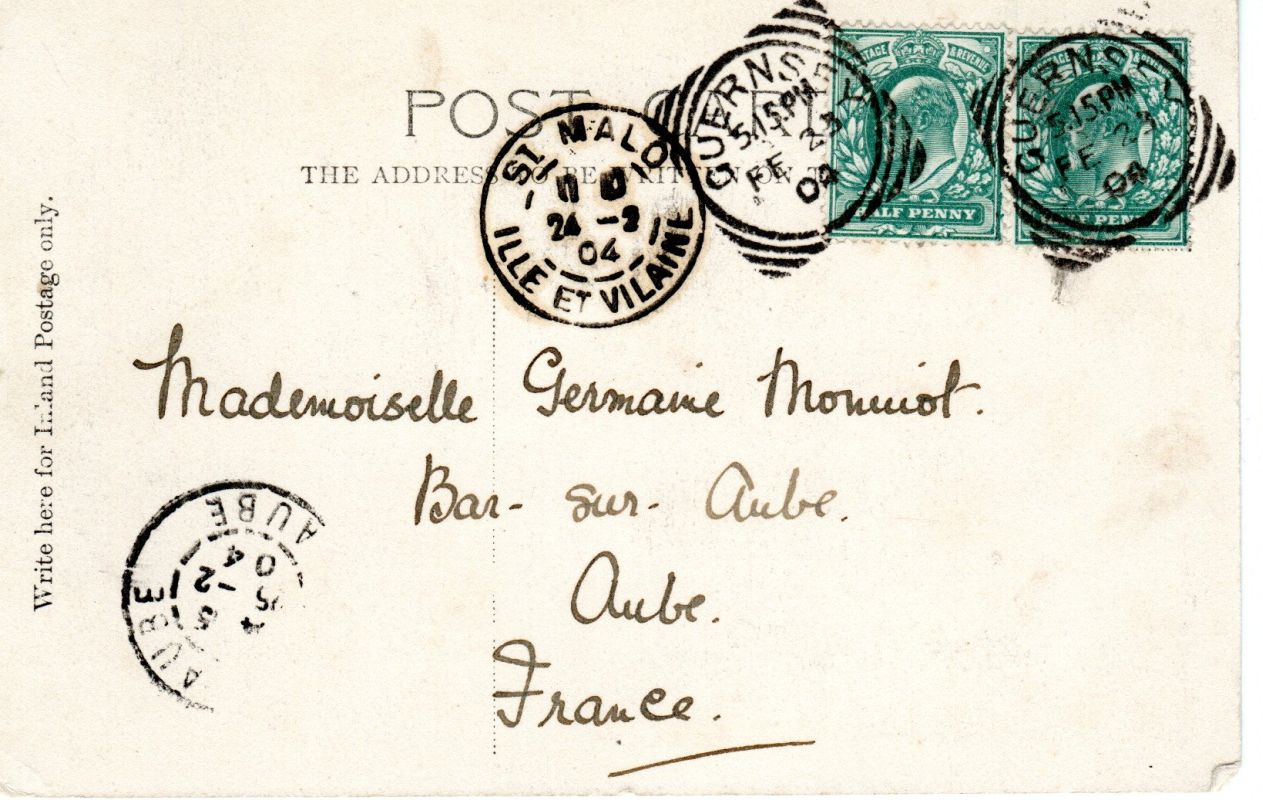 POST CARD
THE ADDRESS TO BE WRITTEN ON T
Write here for Inland Postage only.
ST MALO
24 -2
04
ILLE ET VILAINE
GUERNSEY
5.15.PM
FE 23
04
POSTAGE & REVENUE
HALF PENNY
GUERNSEY
5.15.PM
FE 23
04
HALF PENNY
Mademoiselle Germaine Monniot.
Bar-sur-Aube.
Aube.
France.
AUBE
-2
04
AUBE